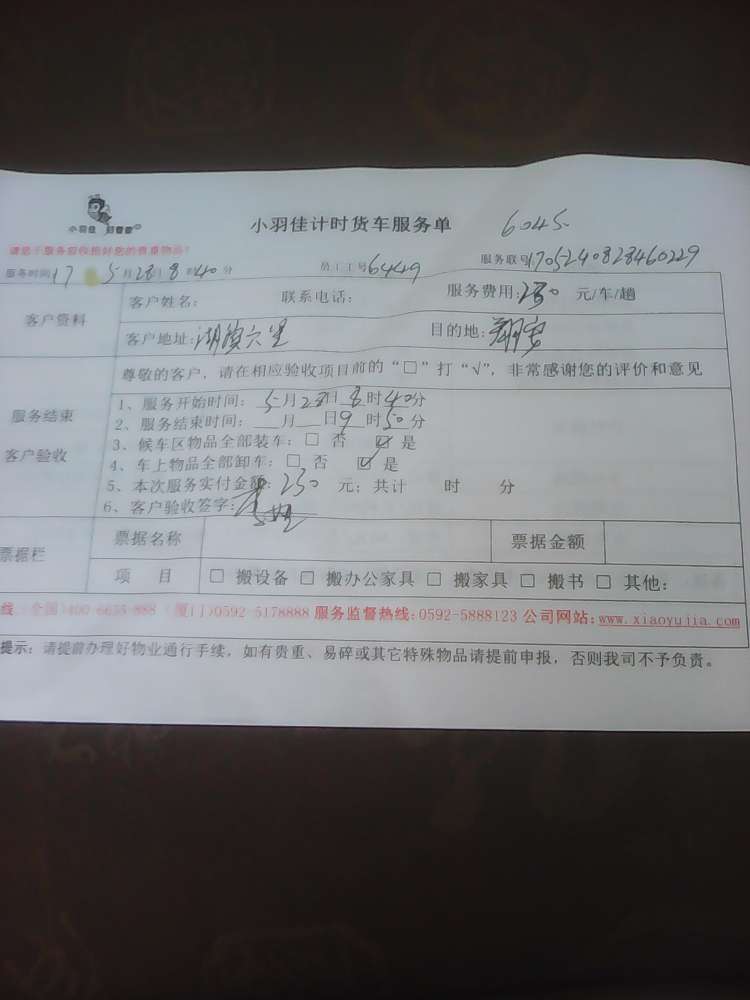 小羽佳
小羽佳计时货车服务单 6045
请您于服务验收前好您的贵重物品!
服务时间 17 5月28日8时40分 员工工号6449 服务联号1705240828460229
客户资料
客户姓名: 联系电话: 服务费用:230 元/车/趟
客户地址: 湖滨六里 目的地: 翔安
服务结束
客户验收
尊敬的客户,请在相应验收项目前的“□”打“√”,非常感谢您的评价和意见
1、服务开始时间: 5月28日8时40分
2、服务结束时间: __月__日9时50分
3、候车区物品全部装车: □ 否 ☑ 是
4、车上物品全部卸车: □ 否 ☑ 是
5、本次服务实付金额: 230 元; 共计 时 分
6、客户验收签字:
票据栏
票据名称 票据金额
项 目 □ 搬设备 □ 搬办公家具 □ 搬家具 □ 搬书 □ 其他:
线: 全国)400-6655-888 (厦门)0592-5178888 服务监督热线:0592-5888123 公司网站:www.xiaoyujia.com
提示: 请提前办理好物业通行手续, 如有贵重、易碎或其它特殊物品请提前申报, 否则我司不予负责。